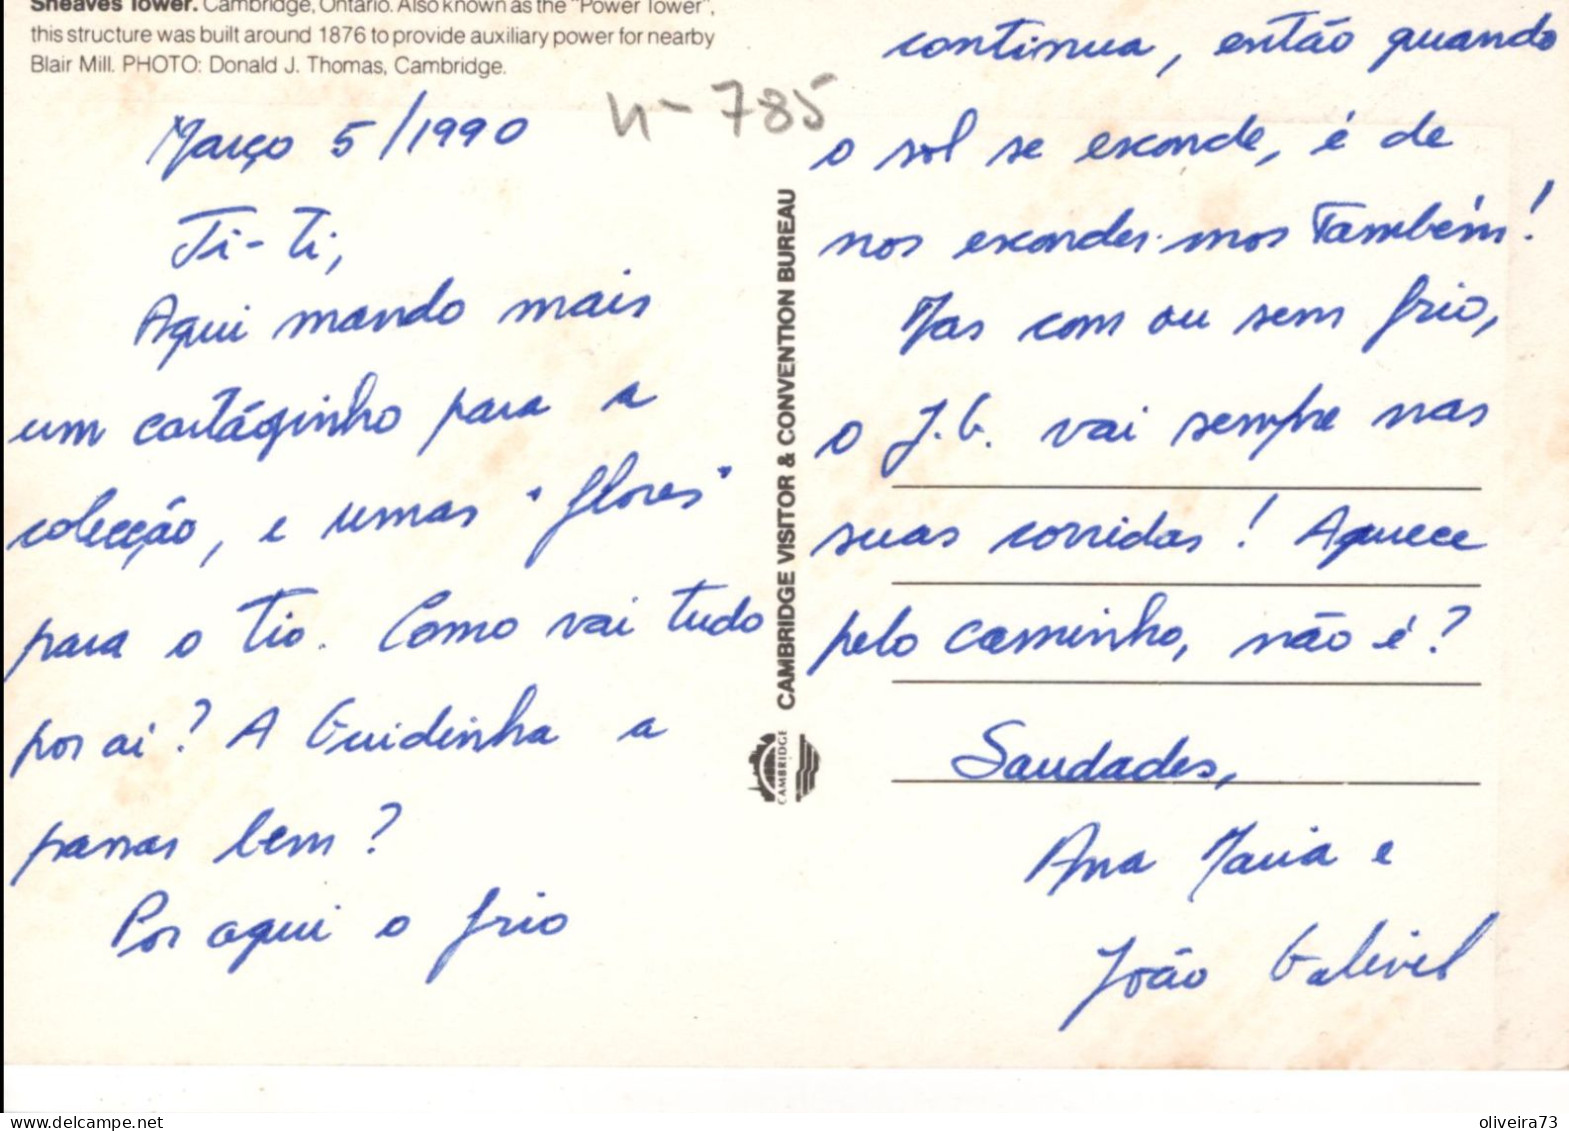 Sheaves Tower. Cambridge, Ontario. Also known as the "Power Tower",
this structure was built around 1876 to provide auxiliary power for nearby
Blair Mill. PHOTO: Donald J. Thomas, Cambridge.
n- 785
Março 5/1990
Ti-Ti,
Aqui mando mais
um cartãozinho para a
colecção, e umas "flores"
para o Tio. Como vai tudo
por ai? A Guidinha a
passar bem?
Por aqui o frio
continua, então quando
o sol se esconde, é de
nos esconder-mos Também!
Mas com ou sem frio,
o J.G. vai sempre nas
suas corridas! Aquece
pelo caminho, não é?
Saudades,
Ana Maria e
João Gabriel
CAMBRIDGE VISITOR & CONVENTION BUREAU
CAMBRIDGE
oliveira73